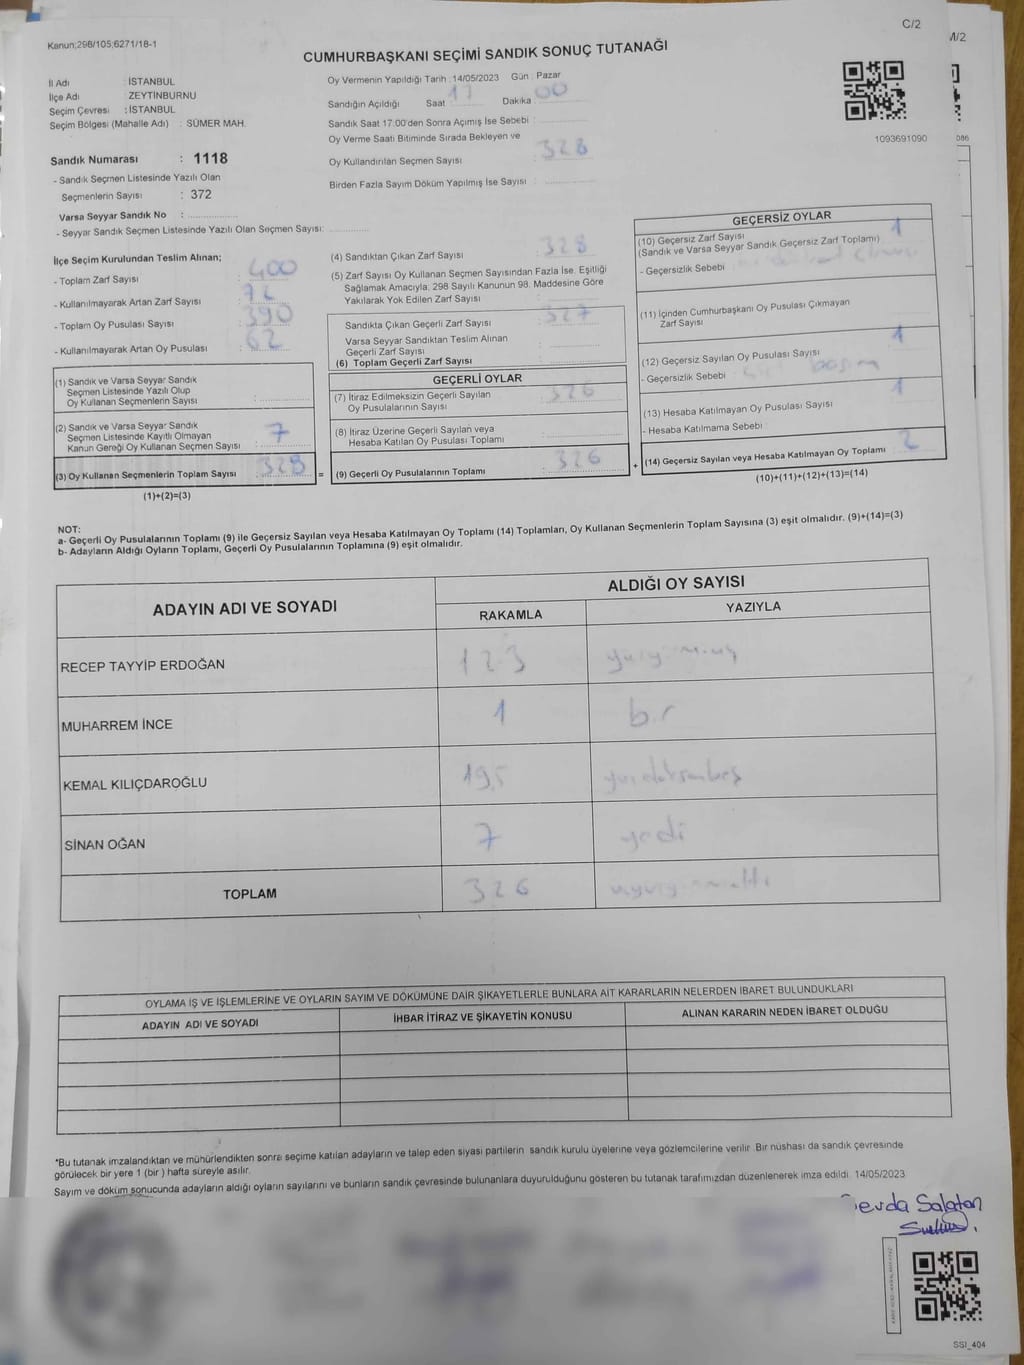 C/2
Kanun;298/105;6271/18-1
CUMHURBAŞKANI SEÇİMİ SANDIK SONUÇ TUTANAĞI
İl Adı : İSTANBUL
İlçe Adı : ZEYTİNBURNU
Seçim Çevresi : İSTANBUL
Seçim Bölgesi (Mahalle Adı) : SÜMER MAH.
Oy Vermenin Yapıldığı Tarih : 14/05/2023 Gün : Pazar
Sandığın Açıldığı Saat 17 Dakika 00
Sandık Saat 17.00'den Sonra Açımış İse Sebebi :
Oy Verme Saati Bitiminde Sırada Bekleyen ve
Oy Kullandırılan Seçmen Sayısı : 328
Birden Fazla Sayım Döküm Yapılmış İse Sayısı :
1093691090
Sandık Numarası : 1118
- Sandık Seçmen Listesinde Yazılı Olan
Seçmenlerin Sayısı : 372
Varsa Seyyar Sandık No :
- Seyyar Sandık Seçmen Listesinde Yazılı Olan Seçmen Sayısı:
İlçe Seçim Kurulundan Teslim Alınan;
- Toplam Zarf Sayısı : 400
- Kullanılmayarak Artan Zarf Sayısı : 72
- Toplam Oy Pusulası Sayısı : 390
- Kullanılmayarak Artan Oy Pusulası : 62
(1) Sandık ve Varsa Seyyar Sandık
Seçmen Listesinde Yazılı Olup
Oy Kullanan Seçmenlerin Sayısı :
(2) Sandık ve Varsa Seyyar Sandık
Seçmen Listesinde Kayıtlı Olmayan
Kanun Gereği Oy Kullanan Seçmen Sayısı : 7
(3) Oy Kullanan Seçmenlerin Toplam Sayısı : 328
(1)+(2)=(3)
(4) Sandıktan Çıkan Zarf Sayısı : 328
(5) Zarf Sayısı Oy Kullanan Seçmen Sayısından Fazla İse, Eşitliği
Sağlamak Amacıyla; 298 Sayılı Kanunun 98. Maddesine Göre
Yakılarak Yok Edilen Zarf Sayısı :
Sandıkta Çıkan Geçerli Zarf Sayısı : 327
Varsa Seyyar Sandıktan Teslim Alınan
Geçerli Zarf Sayısı :
(6) Toplam Geçerli Zarf Sayısı :
GEÇERLİ OYLAR
(7) İtiraz Edilmeksizin Geçerli Sayılan
Oy Pusulalarının Sayısı : 326
(8) İtiraz Üzerine Geçerli Sayılan veya
Hesaba Katılan Oy Pusulası Toplamı :
= (9) Geçerli Oy Pusulalarının Toplamı : 326
GEÇERSİZ OYLAR
(10) Geçersiz Zarf Sayısı 1
(Sandık ve Varsa Seyyar Sandık Geçersiz Zarf Toplamı)
- Geçersizlik Sebebi :
(11) İçinden Cumhurbaşkanı Oy Pusulası Çıkmayan
Zarf Sayısı
(12) Geçersiz Sayılan Oy Pusulası Sayısı : 1
- Geçersizlik Sebebi :
(13) Hesaba Katılmayan Oy Pusulası Sayısı 1
- Hesaba Katılmama Sebebi :
+ (14) Geçersiz Sayılan veya Hesaba Katılmayan Oy Toplamı 2
(10)+(11)+(12)+(13)=(14)
NOT:
a- Geçerli Oy Pusulalarının Toplamı (9) ile Geçersiz Sayılan veya Hesaba Katılmayan Oy Toplamı (14) Toplamları, Oy Kullanan Seçmenlerin Toplam Sayısına (3) eşit olmalıdır. (9)+(14)=(3)
b- Adayların Aldığı Oyların Toplamı, Geçerli Oy Pusulalarının Toplamına (9) eşit olmalıdır.
ADAYIN ADI VE SOYADI
ALDIĞI OY SAYISI
RAKAMLA YAZIYLA
RECEP TAYYİP ERDOĞAN 123
MUHARREM İNCE 1 bir
KEMAL KILIÇDAROĞLU 195 yüzdoksanbeş
SİNAN OĞAN 7 yedi
TOPLAM 326
OYLAMA İŞ VE İŞLEMLERİNE VE OYLARIN SAYIM VE DÖKÜMÜNE DAİR ŞİKAYETLERLE BUNLARA AİT KARARLARIN NELERDEN İBARET BULUNDUKLARI
ADAYIN ADI VE SOYADI İHBAR İTİRAZ VE ŞİKAYETİN KONUSU ALINAN KARARIN NEDEN İBARET OLDUĞU
*Bu tutanak imzalandıktan ve mühürlendikten sonra seçime katılan adayların ve talep eden siyasi partilerin sandık kurulu üyelerine veya gözlemcilerine verilir. Bir nüshası da sandık çevresinde
görülecek bir yere 1 (bir ) hafta süreyle asılır.
Sayım ve döküm sonucunda adayların aldığı oyların sayılarını ve bunların sandık çevresinde bulunanlara duyurulduğunu gösteren bu tutanak tarafımızdan düzenlenerek imza edildi. 14/05/2023
SSI_404